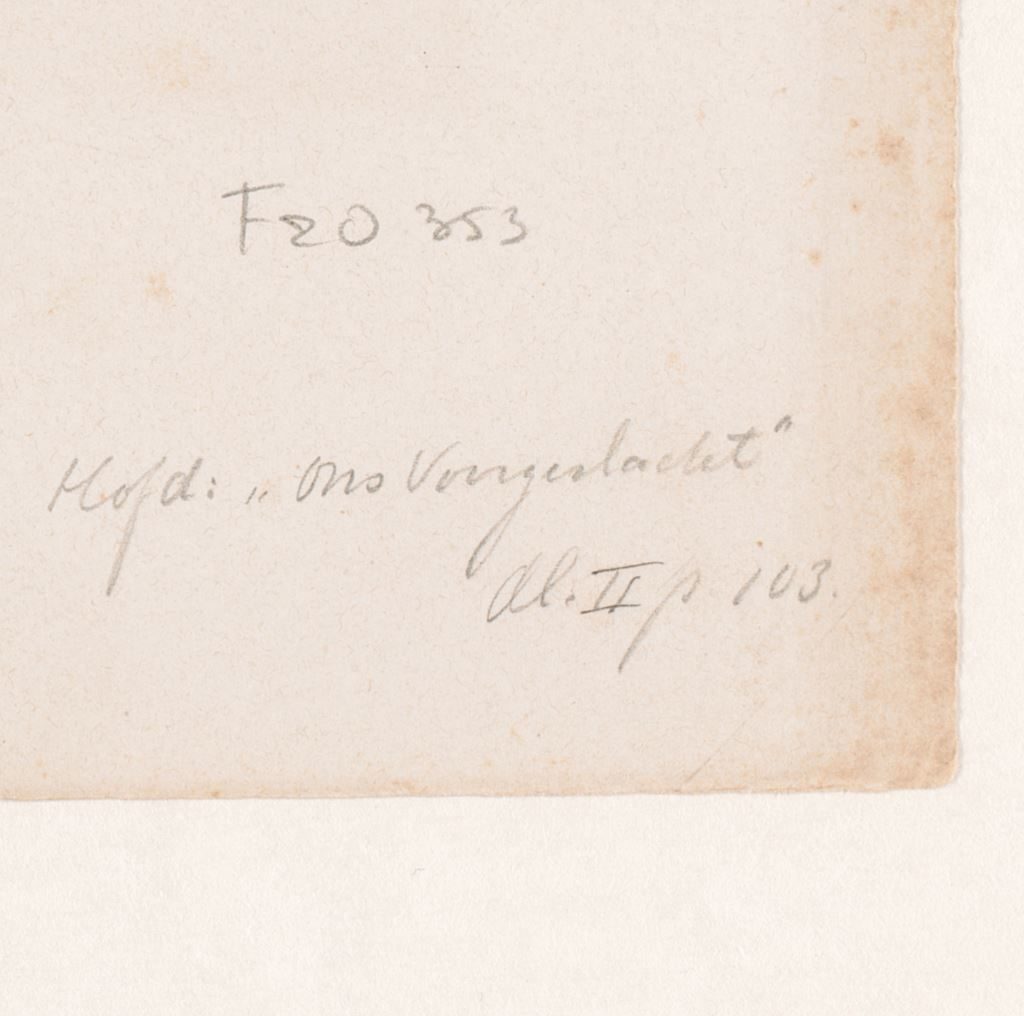 F20 353
Hofd: „Ons Voorgeslacht"
dl. II p. 103.